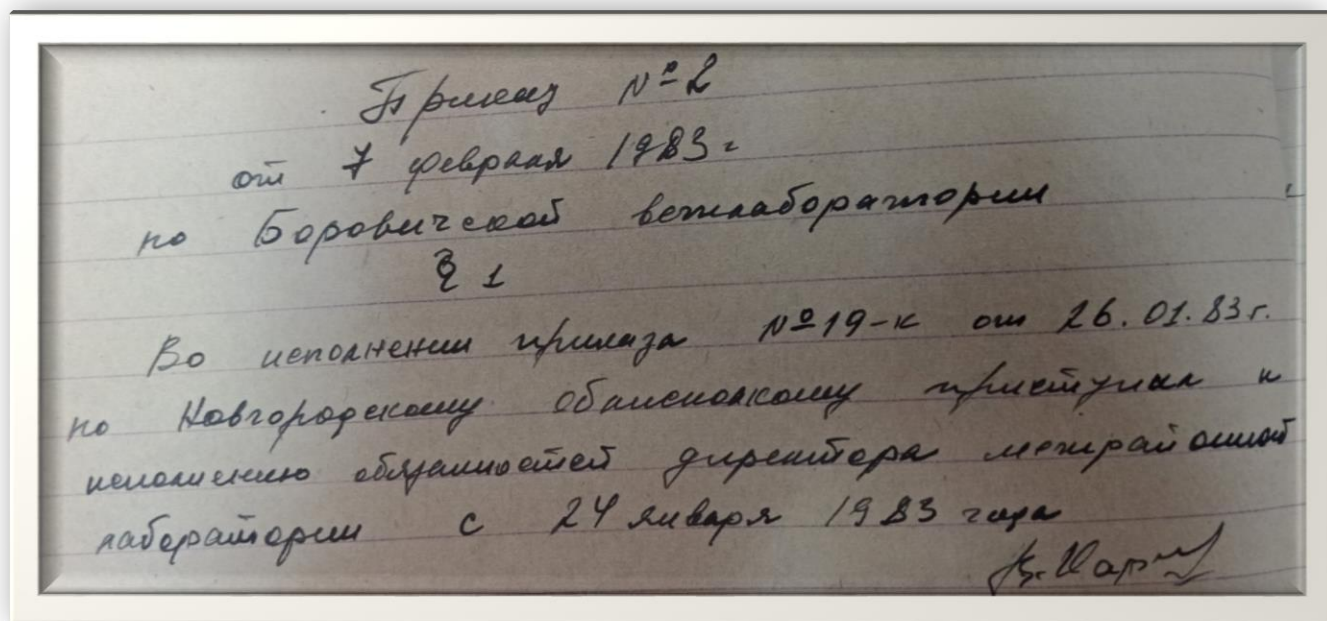 Приказ №2
от 7 февраля 1983г
по Боровичской ветлаборатории
§ 1
Во исполнении приказа №19-к от 26.01.83г.
по Новгородскому облисполкому приступил к
исполнению обязанностей директора межрайонной
лаборатории с 24 января 1983 года